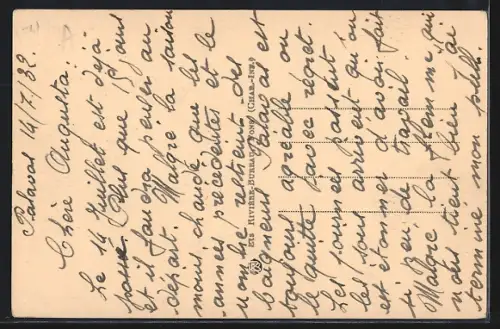 Palavas 14/7/32.
Chère Augusta.
Le 14 Juillet est déjà
passé. Plus que 15 jours
et il faudra penser au
départ. Malgré la saison
moins chaude que les
années précédentes et le
nombre restreint des
baigneurs Palavas est
toujours agréable on
le quitte avec regret.
Les journées passent
les soirs arrivent on
est étonné d'avoir fait
si peu de travail.
Malgré la flemme qui
nous tient bien j'ai
terminé mon pull.
ETS RIVIÈRE-BUREAU, PONS (CHAR.-INF.)